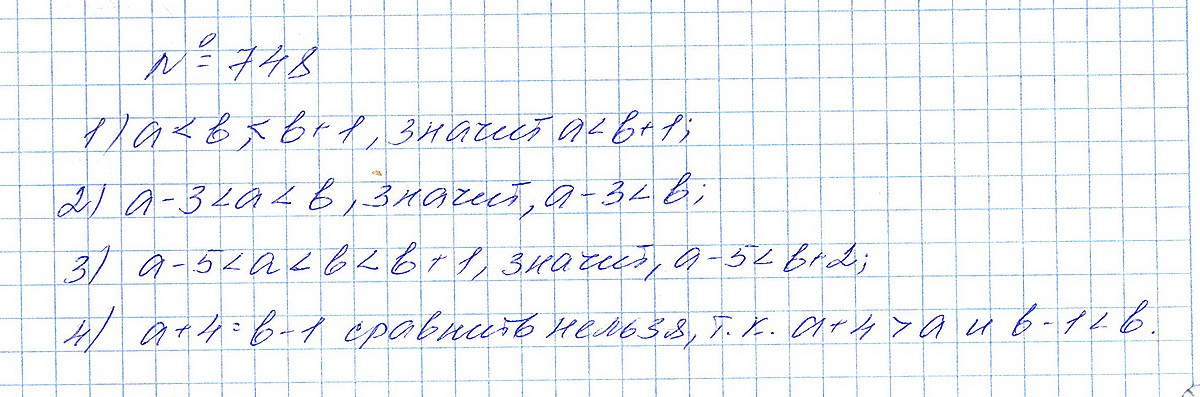 № 748
1) a < b < b + 1, значит a < b + 1;
2) a - 3 < a < b, значит, a - 3 < b;
3) a - 5 < a < b < b + 1, значит, a - 5 < b + 2;
4) a + 4 = b - 1 сравнить нельзя, т. к. a + 4 > a и b - 1 < b.